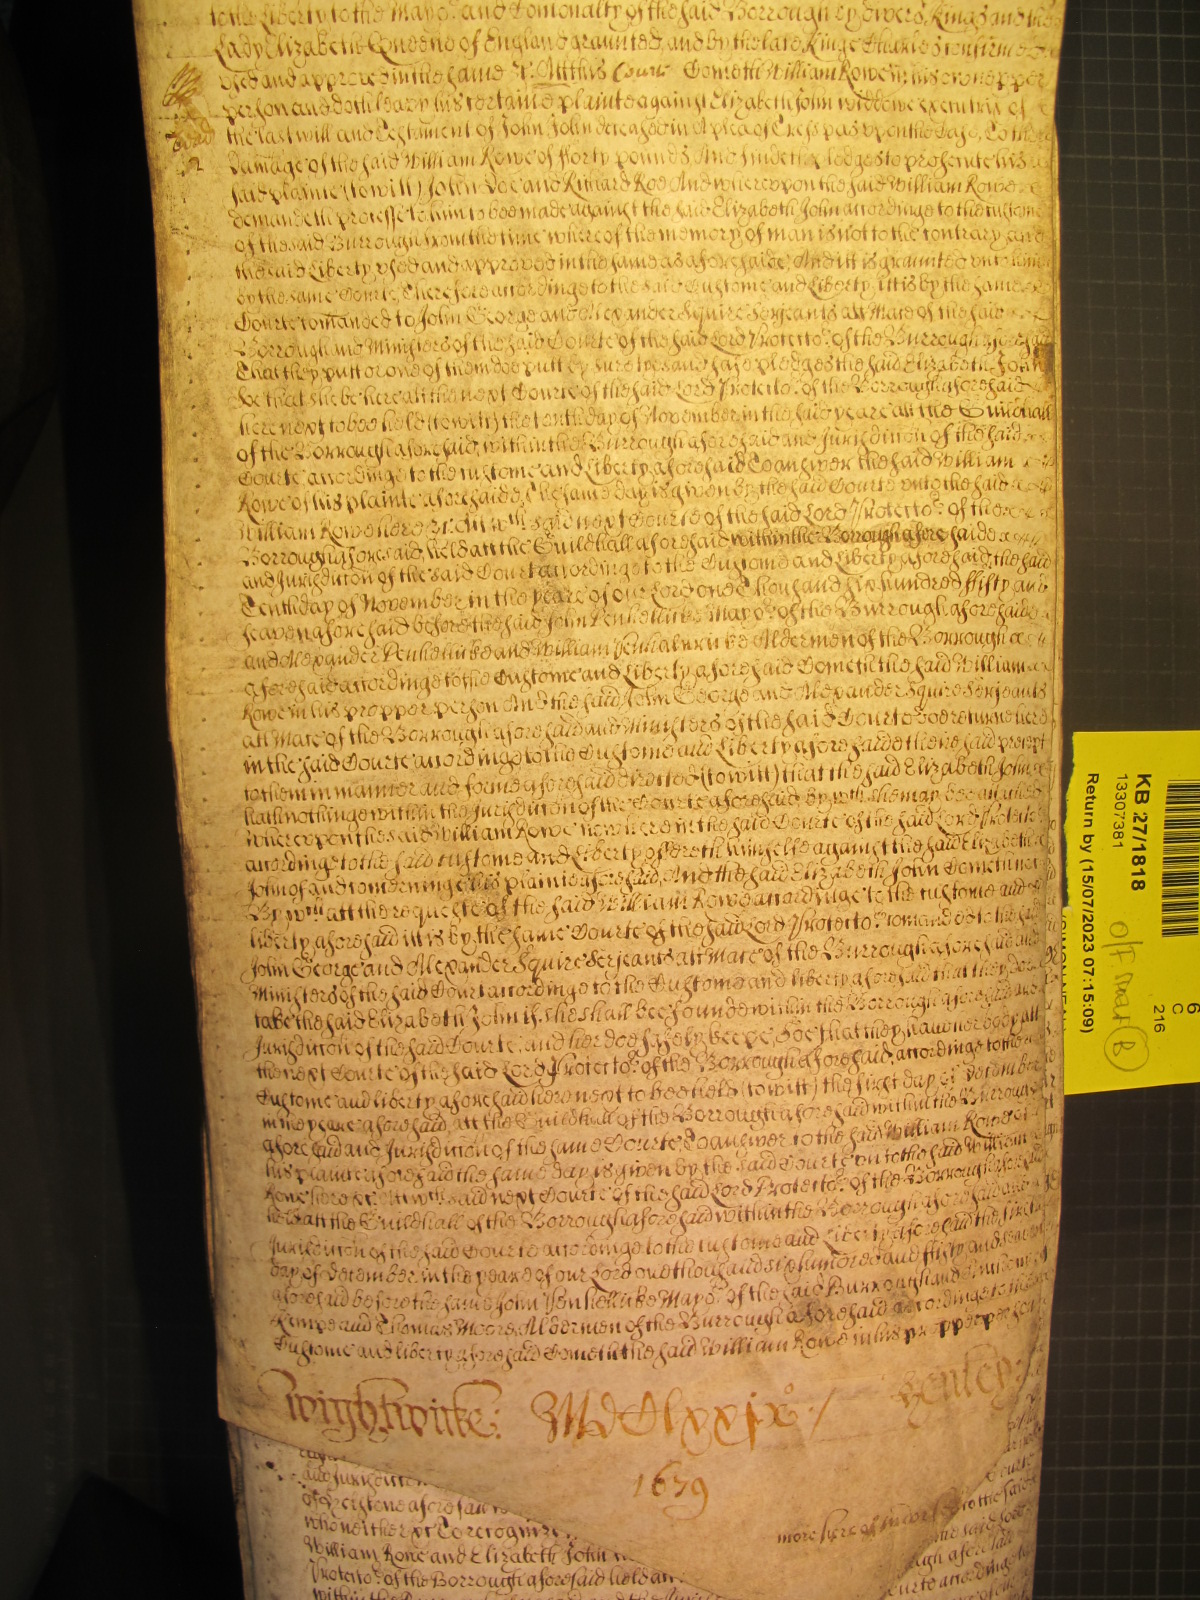 to the Liberty to the Mayor and Comonalty of the said Borrough by severall Kings and the
Lady Elizabeth Queene of England graunted, and by the late Kinge Charles confirmed
vsed and approved in the same &c. Att this Courte Cometh William Rowe in his owne proper
person and doth leavy his certaine plainte against Elizabeth John widdowe executrix of
the last will and Testament of John John deceased in A plea of Trespas vpon the Case, To the
Damage of the said William Rowe of fforty pounds And findeth pledges to prosecute his
said plainte (to witt) John Doe and Richard Roe And wherevpon the said William Rowe
demandeth processe to him to bee made against the said Elizabeth John accordinge to the custome
of the said Burrough from the time whereof the memory of man is not to the contrary and
the said Liberty vsed and approved in the same as aforesaide, And itt is graunted vnto him
by the same Courte, Therefore accordinge to the said Custome and Liberty itt is by the same
Courte comanded to John George and Alexander Squire Serjeants att Mace of the said
Borrough and Ministers of the said Courte of the said Lord Protector of the Burrough aforesaid
That they putt or one of them doe putt by suretyes and safe pledges the said Elizabeth John
Soe that she be here att the next Courte of the said Lord Protector of the Borrough aforesaid
here next to bee held (to witt) the tenth day of November in the said yeare att the Guildhall
of the Borrough aforesaid, within the Burrough aforesaid and Jurisdiccon of the said
Courte accordinge to the custome and Liberty aforesaid To answer the said William
Rowe of his plainte aforesaide, The same day is given by the said Courte vnto the said
William Rowe here &c. Att wch said next Courte of the said Lord Protector of the
Borrough aforesaid, held att the Guildhall aforesaid, within the Borrough aforesaide
and Jurisdiccon of the said Court accordinge to the Custome and Liberty aforesaid, the said
Tenth day of November in the yeare of our Lord one Thousand six hundred ffifty and
seaven aforesaid before the said John Penhellicke Mayor of the Burrough aforesaide
and Alexander Penhellicke and William Penhaluricke Aldermen of the Borrough
aforesaid accordinge to the Custome and Liberty aforesaid Cometh the said William
Rowe in his propper person And the said John George and Alexander Squire Serjeants
att Mace of the Borrough aforesaid and Ministers of the said Courte doe returne here
in the said Courte accordinge to the Custome and Liberty aforesaide the said precept
to them in manner and forme aforesaid directed (to witt) that the said Elizabeth John
hath nothinge within the Jurisdiccon of the Courte aforesaid, by wch she may bee attached
wherevpon the said William Rowe now here in the said Courte of the said Lord Protector
accordinge to the said custome and Liberty offereth himselfe against the said Elizabeth
John of and concerninge his plainte aforesaid, And the said Elizabeth John Cometh not
By wch att the requeste of the said William Rowe accordinge to the custome and
liberty aforesaid itt is by the same Courte of the said Lord Protector comanded to the said
John George and Alexander Squire Serjeants att Mace of the Burrough aforesaid and
Ministers of the said Court accordinge to the Custome and liberty aforesaid that they doe
take the said Elizabeth John if she shall bee founde within the Borrough aforesaid and
Jurisdiccon of the said Courte, and her doe safely keepe, Soe that they have her body att
the next Courte of the said Lord Protector of the Borrough aforesaid, accordinge to the
Custome and liberty aforesaid here next to bee held (to witt) the first day of December
in the yeare aforesaid, att the Guildhall of the Borrough aforesaid within the Burrough
aforesaid and Jurisdiccon of the same Courte, To answer to the said William Rowe of
his plainte aforesaid the same day is given by the said Courte vnto the said William
Rowe here &c. Att wch said next Courte of the said Lord Protector of the Borrough aforesaid
held att the Guildhall of the Borrough aforesaid within the Borrough aforesaid and
Jurisdiccon of the said Courte accordinge to the custome and Liberty aforesaid the first
day of December in the yeare of our Lord one thousand six hundred and ffifty and seaven
aforesaid before the same John Penhellicke Mayor of the said Burrough and
Kempe and Thomas Moore Aldermen of the Burrough aforesaid accordinge to the
Custome and liberty aforesaid Cometh the said William Rowe in his propper person
Wightwicke: MDClxxix /
1679
and Jurisdiccon
William Rowe and Elizabeth John
Protector of the Borrough aforesaid held att
KB 27/1818
13307381
Return by (15/07/2023 07:15:09)
6
C
216